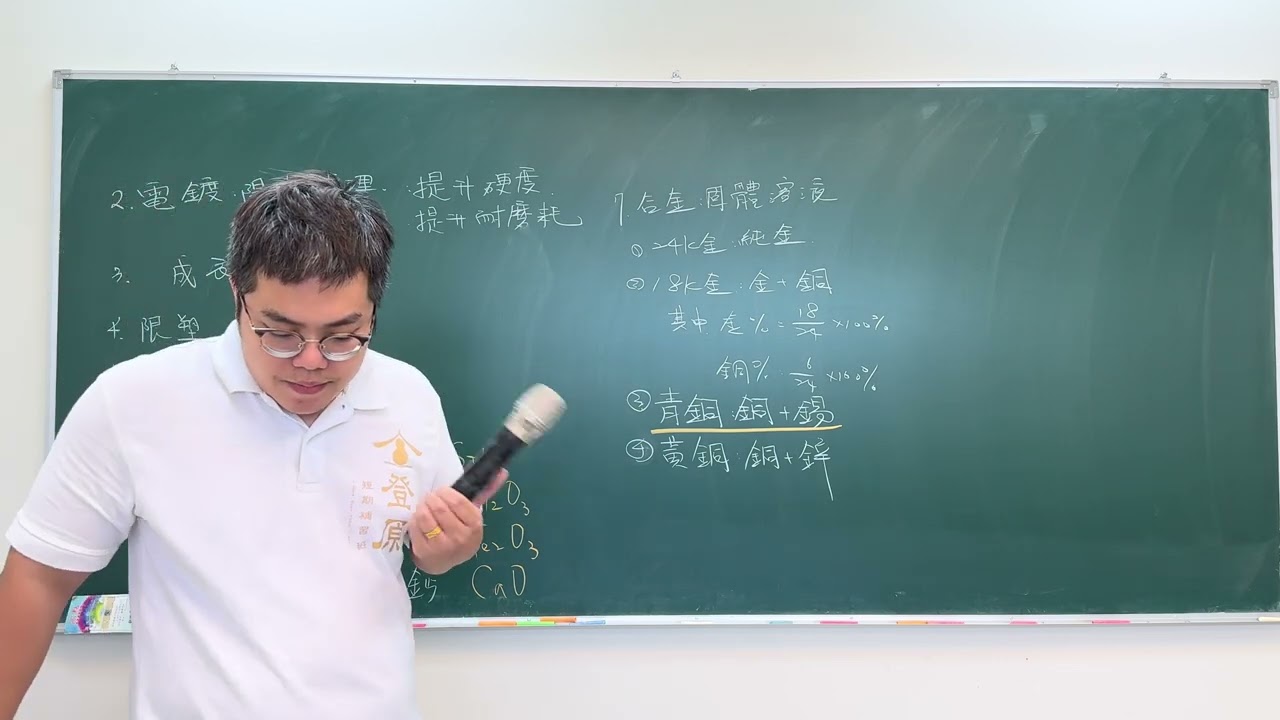 2.電鍍
理:提升硬度.
提升耐磨耗
3. 成長
4.限塑
O3
Fe2O3
鈣 CaO
7.合金:固體溶液
①24K金:純金.
②18K金:金+銅
其中金%=18/24×100%
銅%=6/24×100%
③青銅:銅+錫
④黃銅:銅+鋅
登原
短期補習班